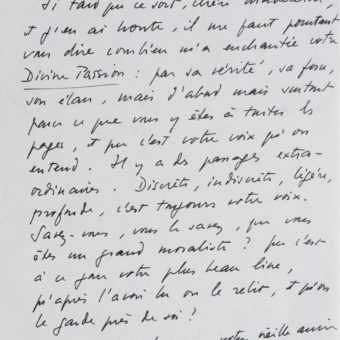 Si tard que ce soit, chère
et j'en ai honte, il me faut pourtant
vous dire combien m'a enchantée votre
Divine Passion : par sa vérité, sa force,
son élan, mais d'abord mais surtout
parce que vous y êtes à toutes les
pages, et que c'est votre voix qu'on
entend. Il y a des passages extra-
ordinaires. Discrète, indiscrète, légère,
profonde, c'est toujours votre voix.
Savez-vous, vous le savez, que vous
êtes un grand moraliste ? que c'est
à ce jour votre plus beau livre,
qu'après l'avoir lu on le relit, et qu'on
le garde près de soi ?
votre vieille amie